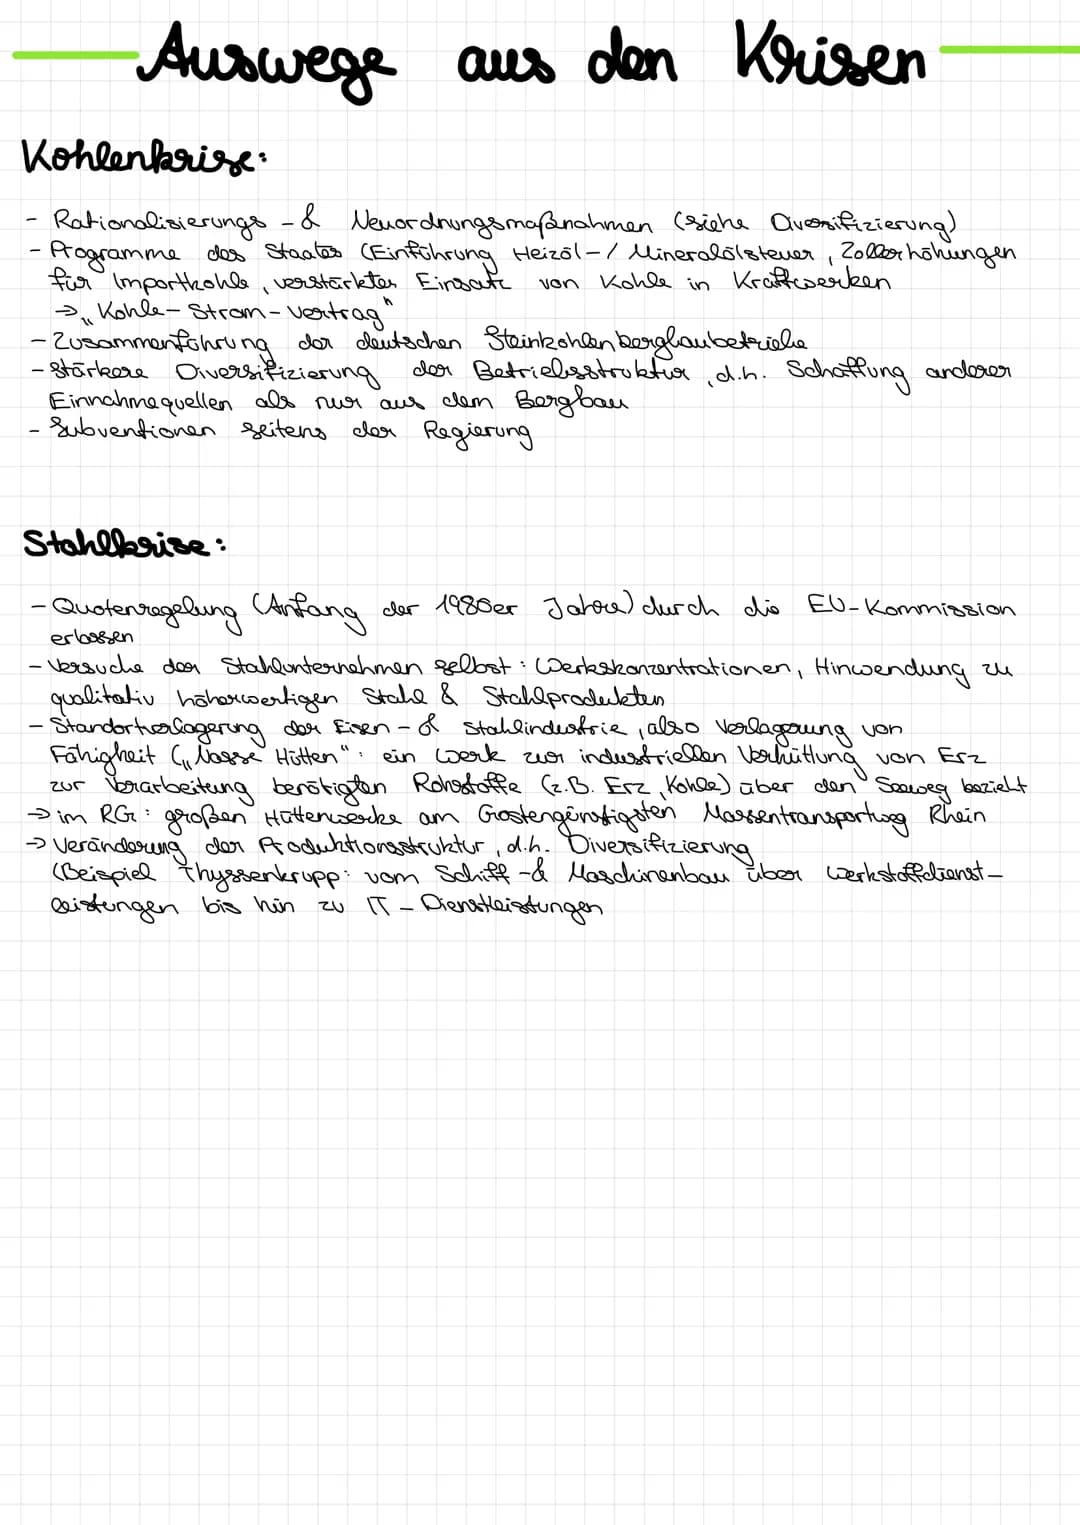 Auswege aus den Krisen
Kohlenkrise:
- Rationalisierungs - & Neuordnungsmaßnahmen (siehe Diversifizierung)
- Programme des Staates (Einführung Heizöl-/ Mineralölsteuer, Zollerhöhungen
für Importkohle, verstärkter Einsatz von Kohle in Kraftwerken
→ „Kohle-Strom-Vertrag"
- Zusammenführung der deutschen Steinkohlenbergbaubetriebe
- Stärkere Diversifizierung der Betriebsstruktur, d.h. Schaffung anderer
Einnahmequellen als nur aus dem Bergbau
- Subventionen seitens der Regierung
Stahlkrise:
- Quotenregelung (Anfang der 1980er Jahre) durch die EU-Kommission
erlassen
- Versuche der Stahlunternehmen selbst: Werkskonzentrationen, Hinwendung zu
qualitativ höherwertigen Stahl & Stahlprodukten
- Standortverlagerung der Eisen- & Stahlindustrie, also Verlagerung von
Fähigkeit („Nasse Hütten": ein Werk zur industriellen Verhüttung von Erz
zur Verarbeitung benötigten Rohstoffe (z.B. Erz, Kohle) über den Seeweg bezieht
→ im RG: großen Hüttenwerke am kostengünstigsten Massentransportweg Rhein
→ Veränderung der Produktionsstruktur, d.h. Diversifizierung
(Beispiel Thyssenkrupp: vom Schiff-& Maschinenbau über Werkstoffdienst-
leistungen bis hin zu IT-Dienstleistungen